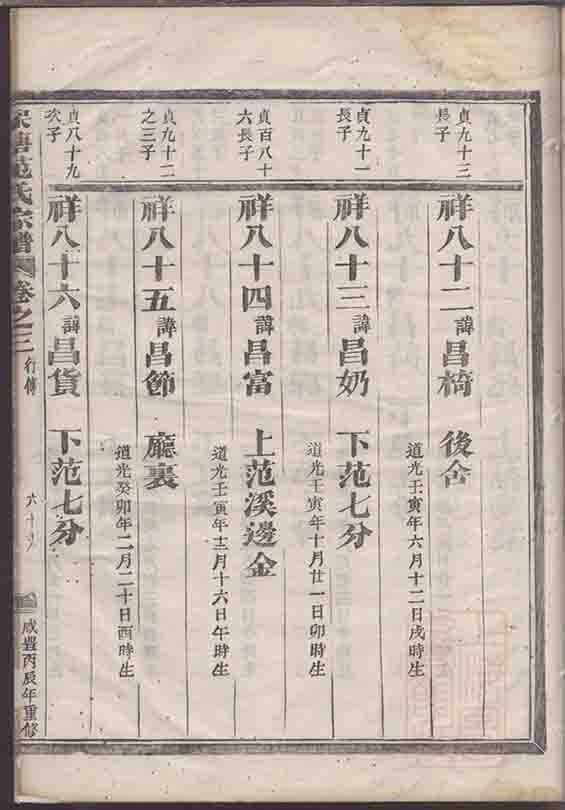 貞九十三
長子
祥八十二諱昌椅 後舍
道光壬寅年六月十二日戌時生
貞九十一
長子
祥八十三諱昌奶 下范七分
道光壬寅年十月廿一日卯時生
貞百八十
六長子
祥八十四諱昌富 上范溪邊金
道光壬寅年十二月十六日午時生
貞九十二
之三子
祥八十五諱昌節 廳裏
道光癸卯年二月二十日酉時生
貞八十九
次子
祥八十六諱昌貨 下范七分
范氏宗譜 卷之三 行傳 六十 咸豐丙辰年重修